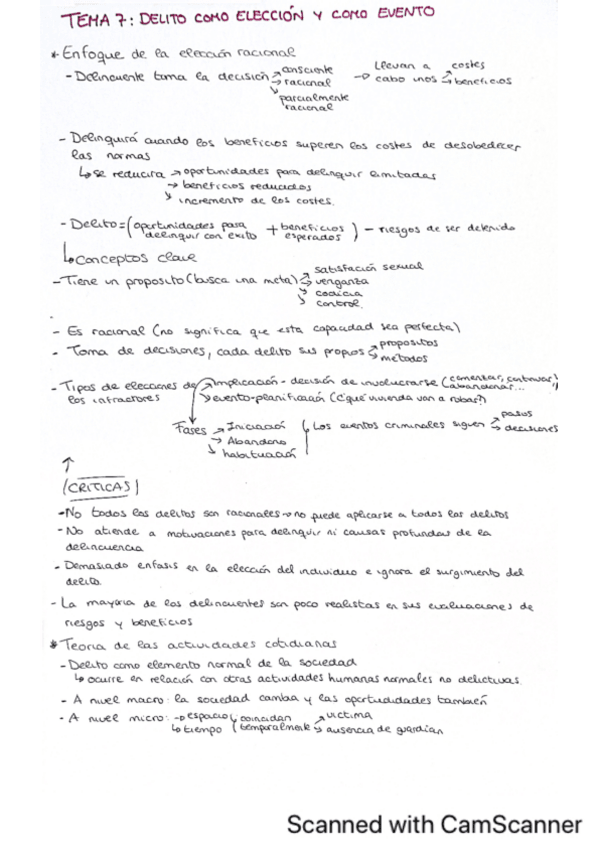 TEMA 7: DELITO COMO ELECCIÓN Y COMO EVENTO
* Enfoque de la elección racional
- Delincuente toma la decisión → consciente → racional → parcialmente racional → Llevan a cabo unos → costes → beneficios
- Delinquirá cuando los beneficios superen los costes de desobedecer
las normas
↳ se reducira → oportunidades para delinquir limitadas
→ beneficios reducidos
→ incremento de los costes.
- Delito = (oportunidades para delinquir con exito + beneficios esperados) - riesgos de ser detenido
↳ conceptos clave
- Tiene un proposito (busca una meta) → satisfacción sexual
→ venganza
→ codicia
→ control.
- Es racional (no significa que esta capacidad sea perfecta)
- Toma de decisiones, cada delito sus propios → propositos
→ metodos
- Tipos de elecciones de los infractores → implicación - decisión de involucrarse (comenzar, continuar, abandonar...)
→ evento-planificación (¿qué vivienda van a robar?)
Fases → Iniciación
→ Abandono
→ habituación
↳ Los eventos criminales siguen → pasos
→ decisiones
↑
(CRITICAS)
- No todos los delitos son racionales → no puede aplicarse a todos los delitos
- No atiende a motivaciones para delinquir ni causas profundas de la
delincuencia
- Demasiado enfasis en la elección del individuo e ignora el surgimiento del
delito.
- La mayoria de los delincuentes son poco realistas en sus evaluaciones de
riesgos y beneficios
* Teoria de las actividades cotidianas
- Delito como elemento normal de la sociedad
↳ ocurre en relación con otras actividades humanas normales no delictivas.
- A nivel macro: la sociedad cambia y las oportudidades también
- A nivel micro: → espacio
↳ tiempo
coincidan temporalmente → victima
→ ausencia de guardian
Scanned with CamScanner